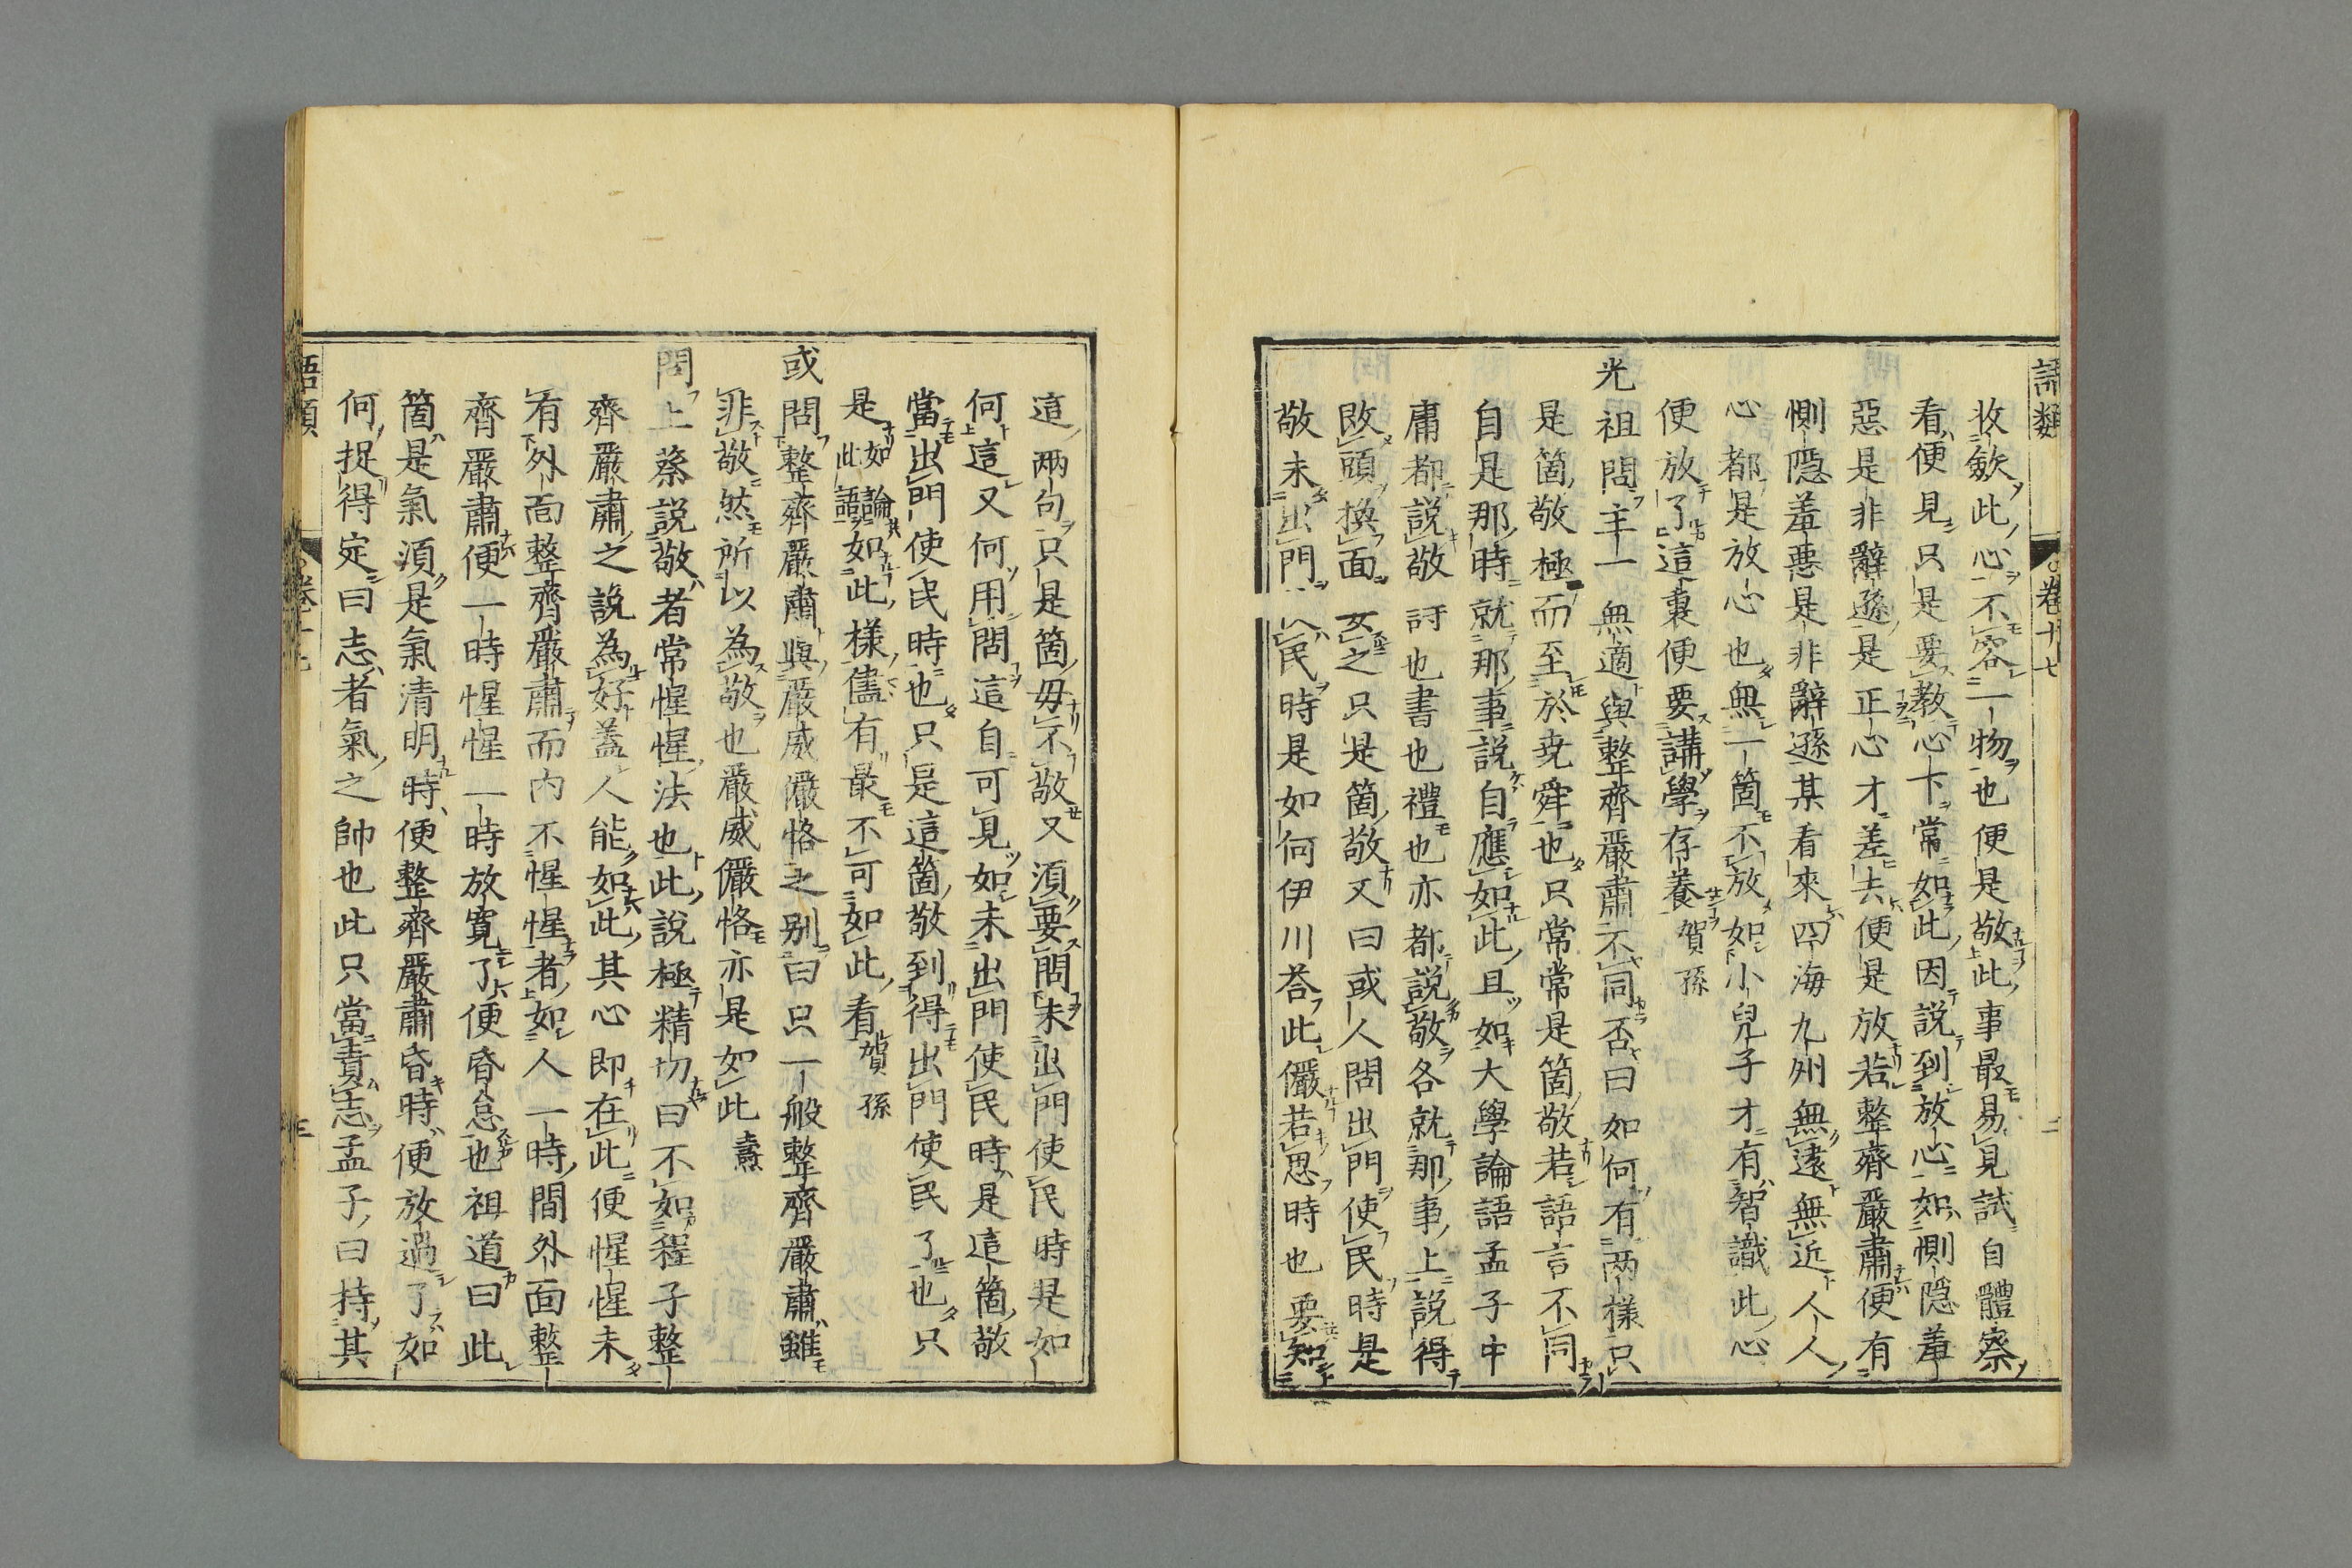 語類
卷十七
二
收歛此心不容一物也便是敬此事最易見試自體察
看便見只是要教心下常如此因説到放心如惻隠羞
惡是非辭遜是正心才差去便是放若整齊嚴肅便有
惻隠羞悪是非辭遜某看來四海九州無遠無近人人
心都是放心也無一箇不放如小兒子才有智識此心
便放了這裏便要講學存養賀孫
光祖問主一無適與整齊嚴肅不同否曰如何有两樣只
是箇敬極而至於尭舜也只常常是箇敬若語言不同
自是那時就那事説自應如此且如大學論語孟子中
庸都説敬詩也書也禮也亦都説敬各就那事上説得
改頭換面要之只是箇敬又曰或人問出門使民時是
敬未出門使民時是如何伊川荅此儼若思時也要知
這兩句只是箇毋不敬又須要問未出門使民時是如
何這又何用問這自可見如未出門使民時是這箇敬
當出門使民時也只是這箇敬到得出門使民了也只
是如此論語如此樣儘有最不可如此看賀孫
或問整齊嚴肅與嚴威儼恪之别曰只一般整齊嚴肅雖
非敬然所以為敬也嚴威儼恪亦是如此燾
問上蔡説敬者常惺惺法也此説極精切曰不如程子整
齊嚴肅之説為好蓋人能如此其心即在此便惺惺未
有外面整齊嚴肅而内不惺惺者如人一時間外面整
齊嚴肅便一時惺惺一時放寛了便昏怠也祖道曰此
箇是氣須是氣清明時便整齊嚴肅昏時便放過了如
何捉得定曰志者氣之帥也此只當責志孟子曰持其
語類
卷十七
三